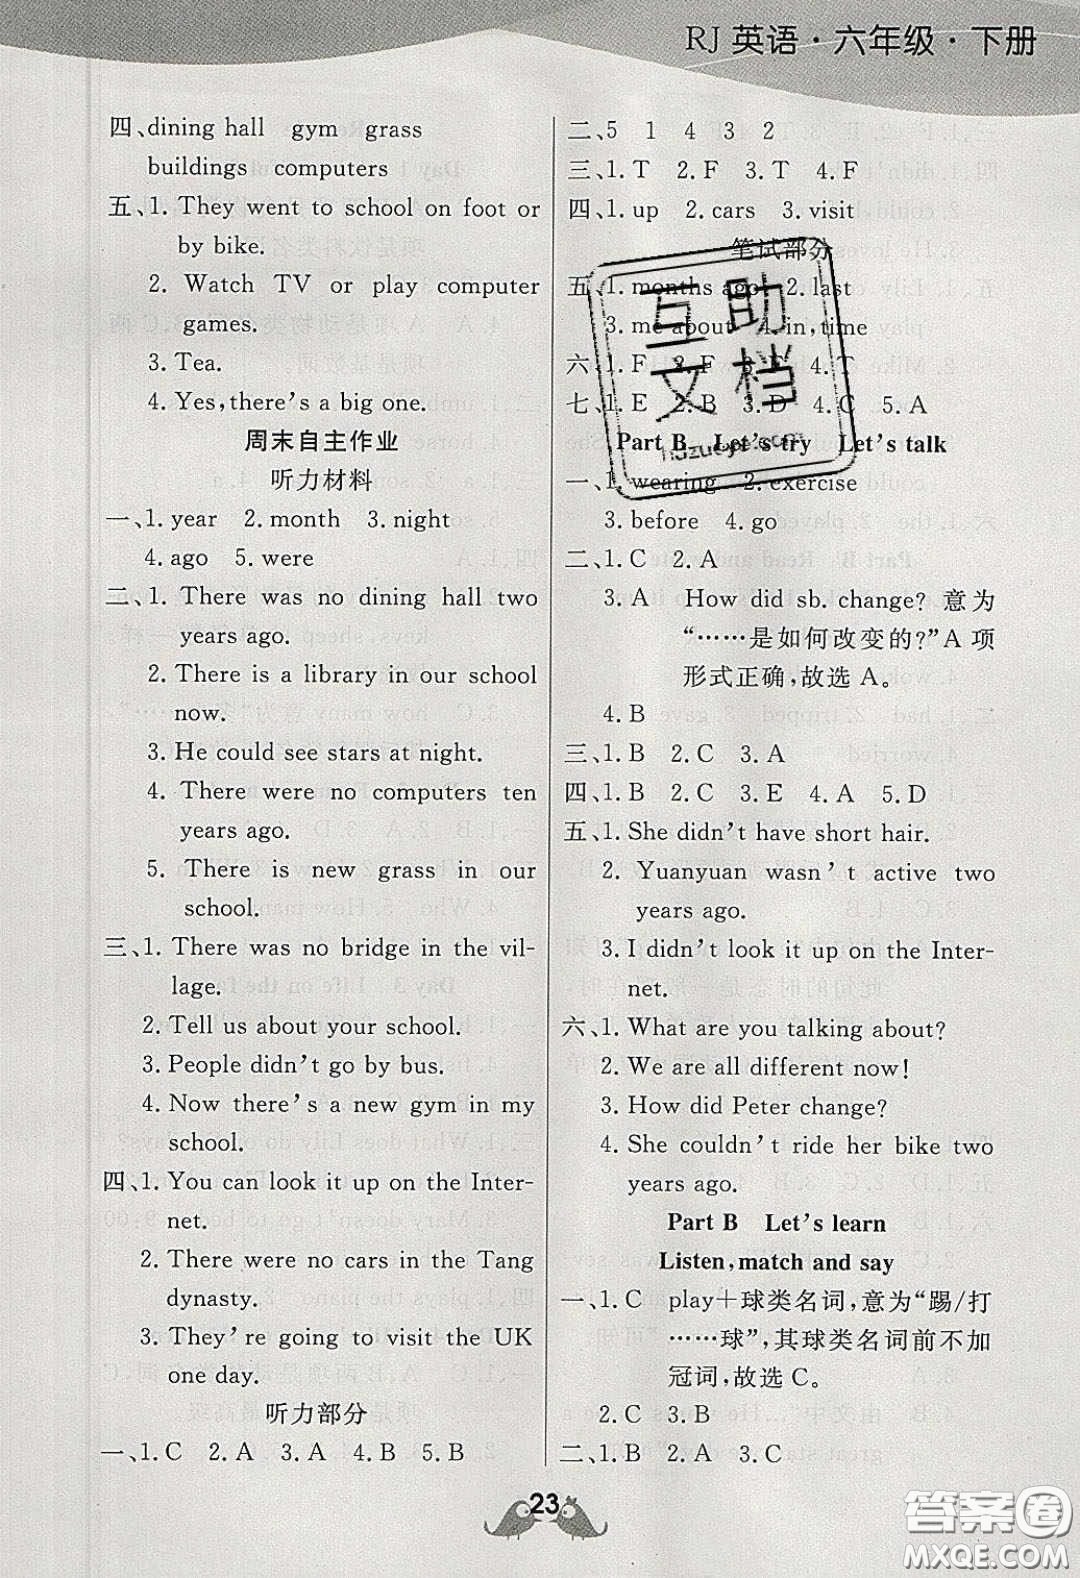 RJ 英语·六年级·下册
四、dining hall gym grass
buildings computers
五、1. They went to school on foot or
by bike.
2. Watch TV or play computer
games.
3. Tea.
4. Yes, there's a big one.
周末自主作业
听力材料
一、1. year 2. month 3. night
4. ago 5. were
二、1. There was no dining hall two
years ago.
2. There is a library in our school
now.
3. He could see stars at night.
4. There were no computers ten
years ago.
5. There is new grass in our
school.
三、1. There was no bridge in the vil-
lage.
2. Tell us about your school.
3. People didn't go by bus.
4. Now there's a new gym in my
school.
四、1. You can look it up on the Inter-
net.
2. There were no cars in the Tang
dynasty.
3. They're going to visit the UK
one day.
听力部分
一、1. C 2. A 3. A 4. B 5. B
二、5 1 4 3 2
三、1. T 2. F 3. T 4. F
四、1. up 2. cars 3. visit
笔试部分
五、1. months ago 2. last
3. me about 4. in, time
六、1. F 2. F 3. F 4. T
七、1. E 2. B 3. D 4. C 5. A
Part B Let's try Let's talk
一、1. wearing 2. exercise
3. before 4. go
二、1. C 2. A
3. A How did sb. change? 意为
“……是如何改变的?”A 项
形式正确,故选 A。
4. B
三、1. B 2. C 3. A
四、1. B 2. C 3. E 4. A 5. D
五、1. She didn't have short hair.
2. Yuanyuan wasn't active two
years ago.
3. I didn't look it up on the Inter-
net.
六、1. What are you talking about?
2. We are all different now!
3. How did Peter change?
4. She couldn't ride her bike two
years ago.
Part B Let's learn
Listen, match and say
一、1. C play+球类名词,意为“踢/打
……球”,其球类名词前不加
冠词,故选 C。
2. C 3. B
二、1. B 2. A 3. C
互助
文档
23
答案圈
MXQE.COM